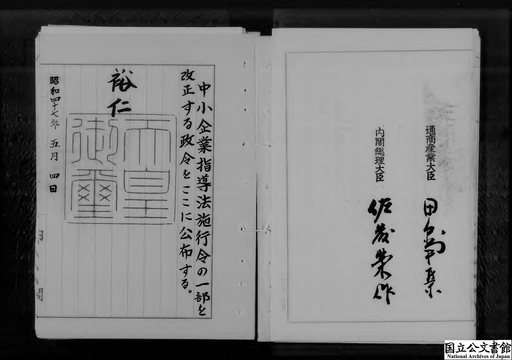 中小企業指導法施行令の一部を
改正する政令をここに公布する。
裕仁
天皇
御璽
昭和四十七年 五月 四日
通商産業大臣 田中角榮
内閣総理大臣 佐藤榮作
国立公文書館
National Archives of Japan